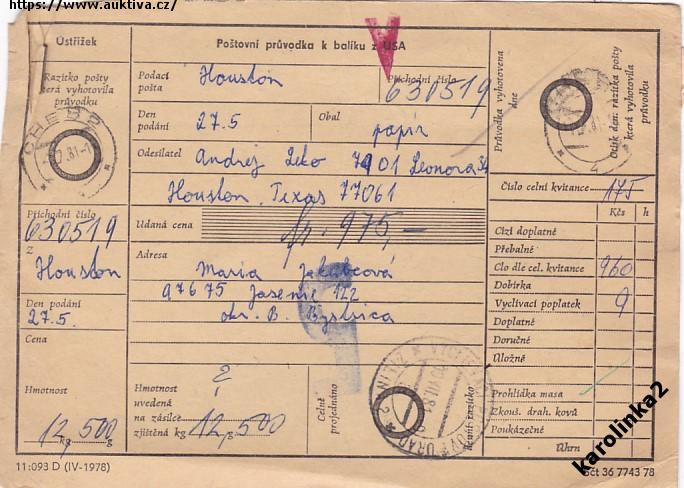 https://www.auktiva.cz/
Ústřižek
Razítko pošty
která vyhotovila
průvodku
CHEB 2
Příchodní číslo
630519
z
Houston
Den podání
27.5.
Cena
Hmotnost
12 kg 500 g
Poštovní průvodka k balíku z USA
Podací
pošta
Houston
Příchodní číslo
630519
Den
podání
27.5
Obal
papír
Odesílatel
Andrej Leko 7901 Leonora
Houston, Texas 77061
Udaná cena
fr. 975,-
Adresa
Maria Jakubcová
97675 Jasenie 122
okr. B. Bystrica
Hmotnost
uvedená
na zásilce
zjištěná kg 12, g 500
Celně
projednáno
Průvodka vyhotovena
dne
Otisk den. razítka pošty
která vyhotovila
průvodku
Číslo celní kvitance 175
Kčs h
Cizí doplatné
Přebalné
Clo dle cel. kvitance 960
Dobírka
Vyclívací poplatek 9
Doplatné
Doručné
Úložné
Prohlídka masa
Zkouš. drah. kovů
Poukázečné
Úhrn
11-093 D (IV-1978)
Sčt 36 7743 78
karolinka2